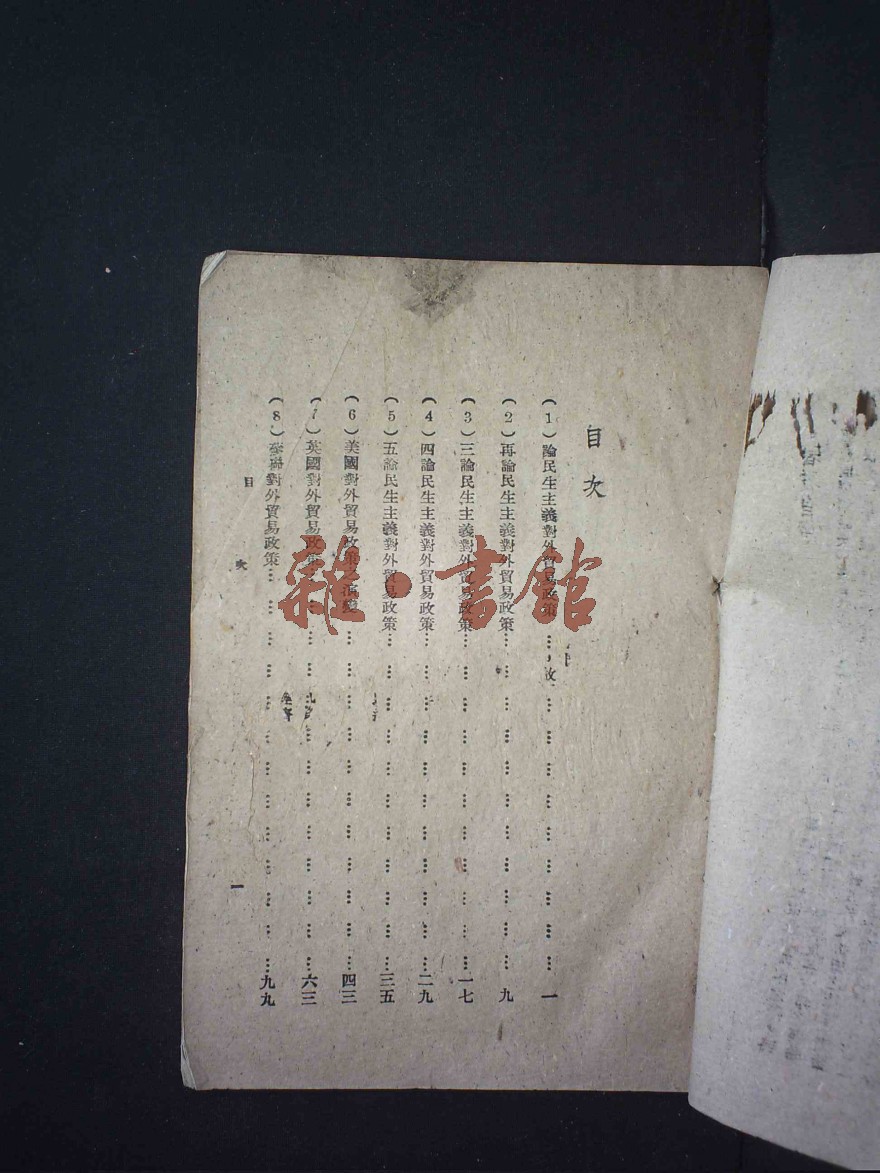 目次
（1）論民生主義對外貿易政策………………………………一
（2）再論民生主義對外貿易政策………………………………九
（3）三論民生主義對外貿易政策………………………………一七
（4）四論民生主義對外貿易政策………………………………二九
（5）五論民生主義對外貿易政策………………………………三五
（6）美國對外貿易政策之演變………………………………四三
（7）英國對外貿易政策………………………………六三
（8）蘇聯對外貿易政策………………………………九九
目次
一
雜·書館